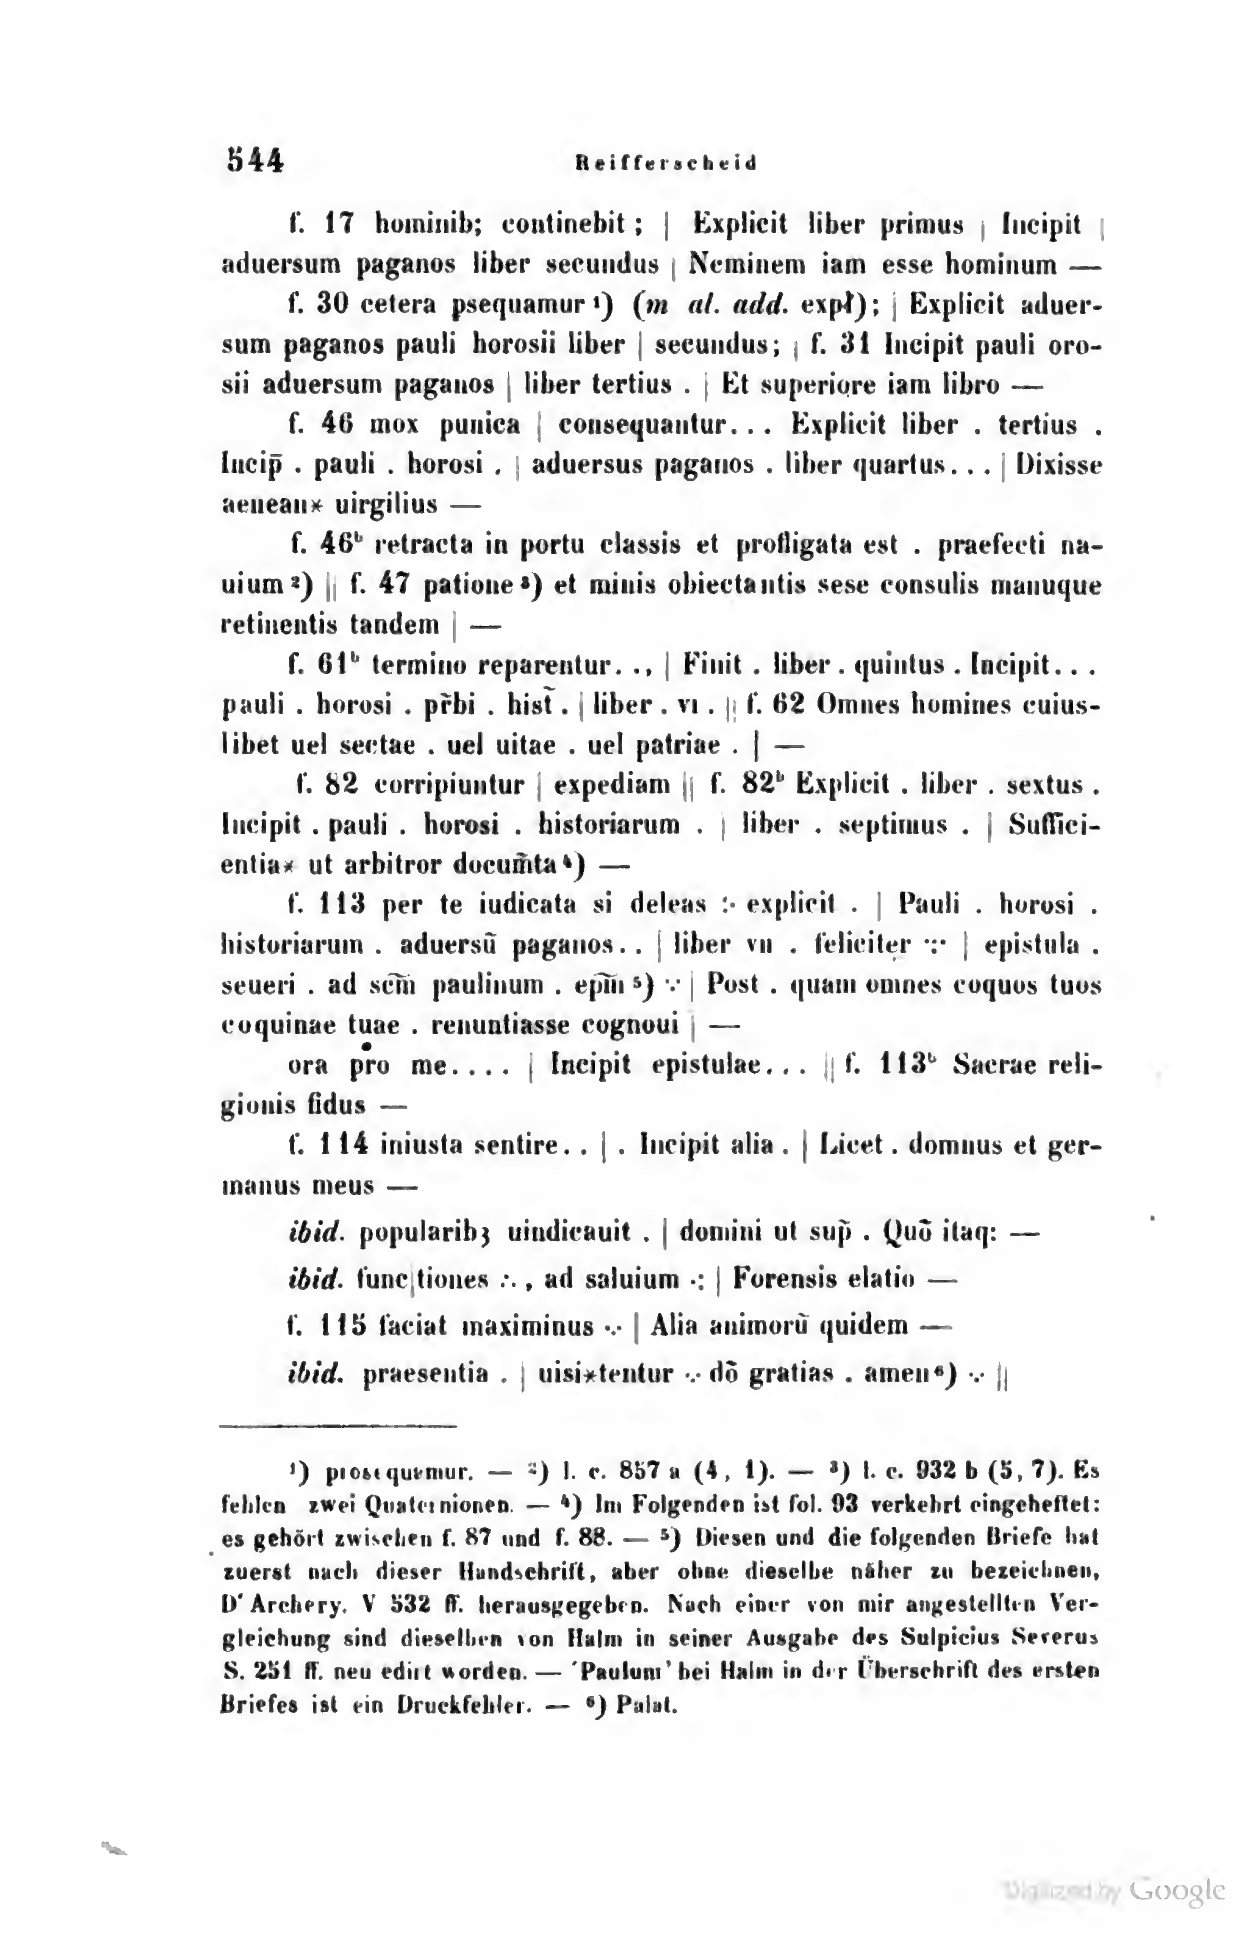 544 Reifferscheid
f. 17 hominib; continebit ; | Explicit liber primus | Incipit |
aduersum paganos liber secundus | Neminem iam esse hominum —
f. 30 cetera psequamur ¹) (m al. add. expł); | Explicit aduer-
sum paganos pauli horosii liber | secundus; | f. 31 Incipit pauli oro-
sii aduersum paganos | liber tertius . | Et superiọre iam libro —
f. 46 mox punica | consequantur. . . Explicit liber . tertius .
Incip̄ . pauli . horosi . | aduersus paganos . liber quartus. . . | Dixisse
aenean* uirgilius —
f. 46ᵇ retracta in portu classis et profligata est . praefecti na-
uium ²) || f. 47 patione ³) et minis obiectantis sese consulis manuque
retinentis tandem | —
f. 61ᵇ termino reparentur. . , | Finit . liber . quintus . Incipit. . .
pauli . horosi . pr̄bi . hist̄ . | liber . vi . || f. 62 Omnes homines cuius-
libet uel sectae . uel uitae . uel patriae . | —
f. 82 corripiuntur | expediam || f. 82ᵇ Explicit . liber . sextus .
Incipit . pauli . horosi . historiarum . | liber . septimus . | Suffici-
entia* ut arbitror docum̄ta ⁴) —
f. 113 per te iudicata si deleas :· explicit . | Pauli . horosi .
historiarum . aduersū paganos. . | liber vii . feliciteṛ ·:· | epistula .
seueri . ad sc̄m̄ paulinum . ep̄m̄ ⁵) ∵ | Post . quam omnes coquos tuos
coquinae tuae . renuntiasse cognoui | —
ora pro me. . . . | Incipit epistulae. . . || f. 113ᵇ Sacrae reli-
gionis fidus —
f. 114 iniusta sentire. . | . Incipit alia . | Licet . domnus et ger-
manus meus —
ibid. popularibꝫ uindicauit . | domini ut sup̄ . Quō itaq: —
ibid. func|tiones ∴ , ad saluium ·: | Forensis elatio —
f. 115 faciat maximinus ∵ | Alia animorū quidem —
ibid. praesentia . | uisi*tentur ∵ dō gratias . amen ⁶) ∵ ||
¹) prosequemur. — ²) l. c. 857 a (4, 1). — ³) l. c. 932 b (5, 7). Es
fehlen zwei Quaternionen. — ⁴) Im Folgenden ist fol. 93 verkehrt eingeheftet:
es gehört zwischen f. 87 und f. 88. — ⁵) Diesen und die folgenden Briefe hat
zuerst nach dieser Handschrift, aber ohne dieselbe näher zu bezeichnen,
D'Archery. V 532 ff. herausgegeben. Nach einer von mir angestellten Ver-
gleichung sind dieselben von Halm in seiner Ausgabe des Sulpicius Severus
S. 251 ff. neu edirt worden. — 'Paulum' bei Halm in der Überschrift des ersten
Briefes ist ein Druckfehler. — ⁶) Palat.
Digitized by Google